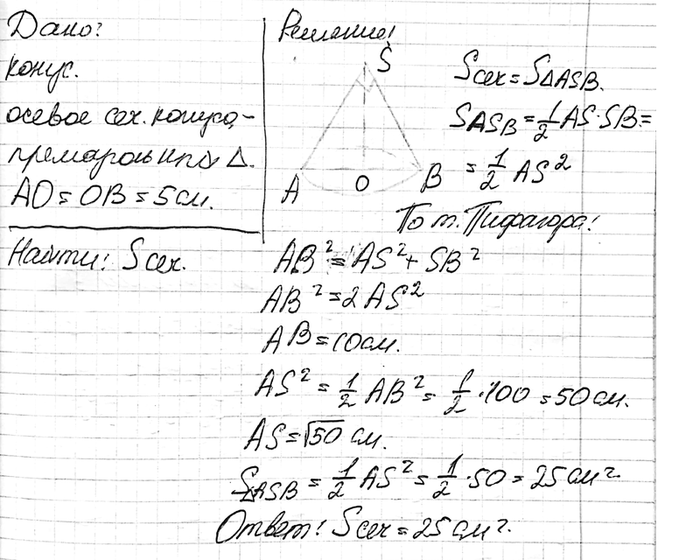 Дано:
конус.
осевое сеч. конуса -
прямоугольный Δ.
AO = OB = 5 см.
Найти: Sсеч.
Решение:
S
A O B
Sсеч = SΔASB.
SASB = 1/2 AS · SB =
= 1/2 AS²
По т. Пифагора:
AB² = AS² + SB²
AB² = 2AS²
AB = 10 см.
AS² = 1/2 AB² = 1/2 · 100 = 50 см.
AS = √50 см.
SΔASB = 1/2 AS² = 1/2 · 50 = 25 см²
Ответ: Sсеч = 25 см².